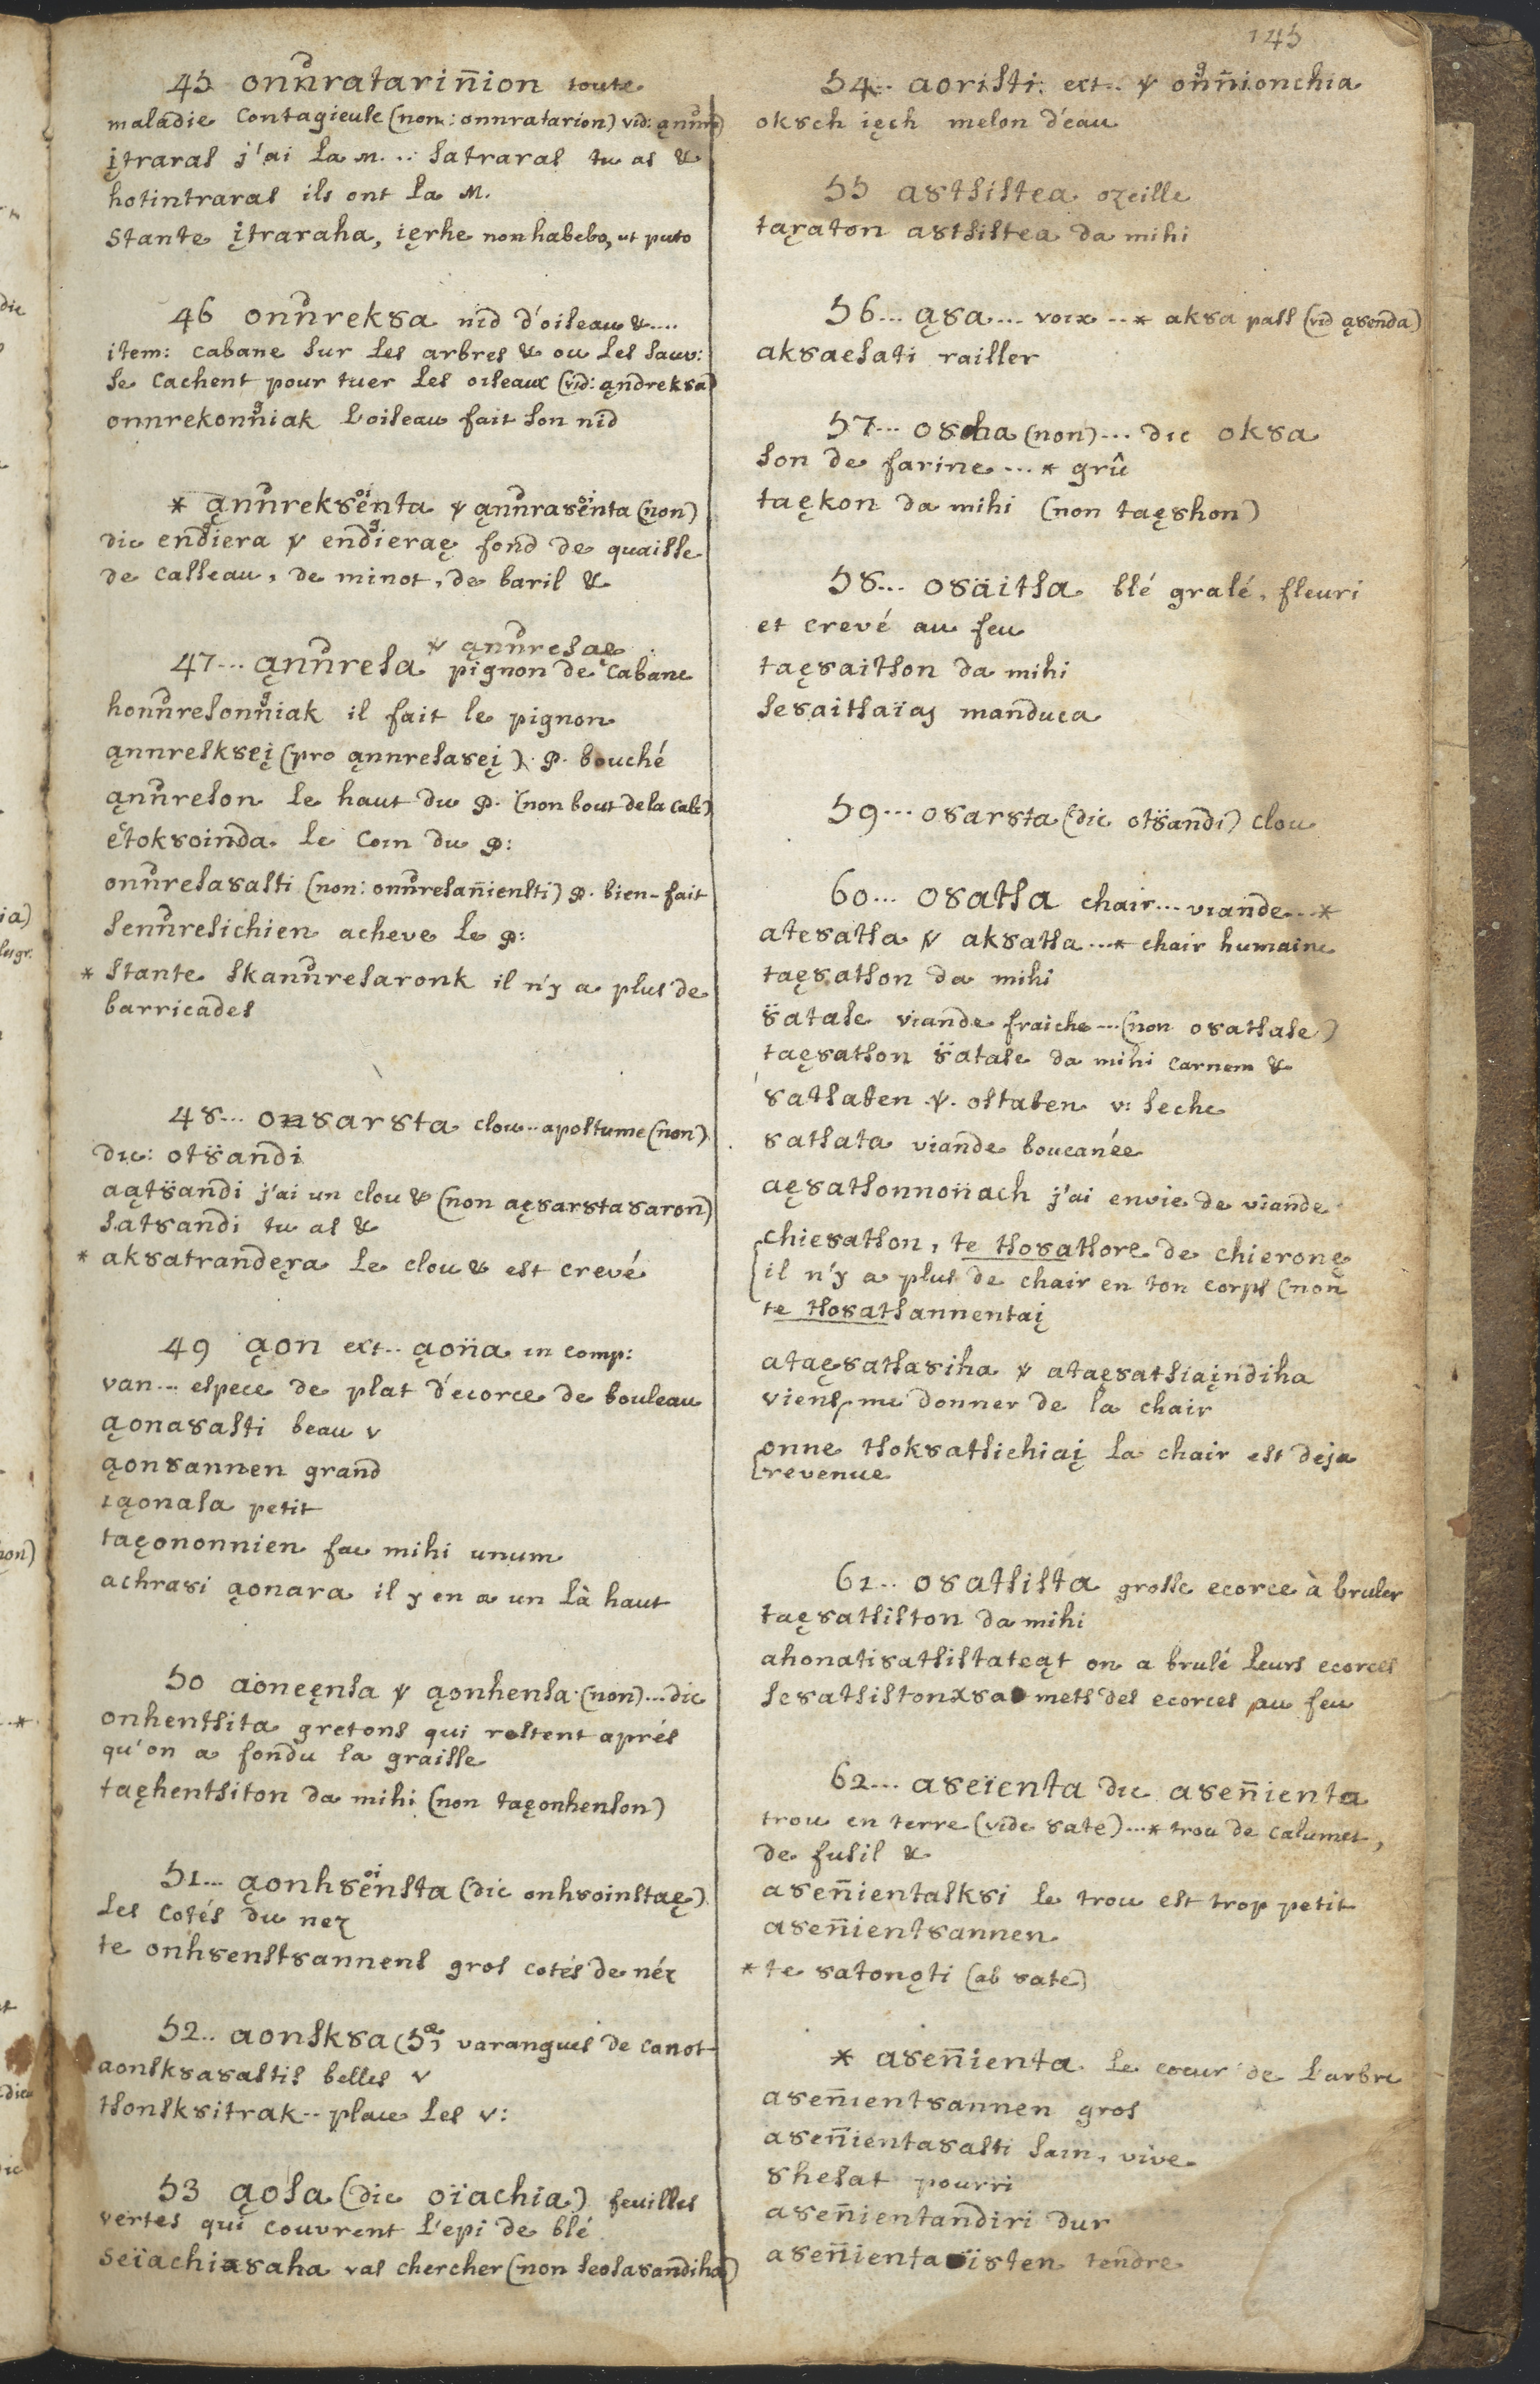 145
45 onnratarinion toute
maladie contagieuse (non: onnratarion) vid: ąnnra)
įtraras j'ai la m... satraras tu as &
hotintraras ils ont la M.
stante įtraraha, ięrhe non habebo, ut puto
46 onnrek8a nid d'oiseau &....
item: cabane sur les arbres & ou les sauv:
se cachent pour tuer les oiseaux (vid: ąndrek8a)
onnrekonniak l'oiseau fait son nid
* ąnnrek8enta ѱ ąnnra8enta (non)
dic endiera ѱ endieraę fond de quaisse
de casseau, de minot, de baril &
ѱ ąnnresae
47... ąnnresa pignon de cabane
honnresonniak il fait le pignon
ąnnresk8eį (pro ąnnresa8eį) p. bouché
ąnnreson le haut du p. (non bout de la cab:)
etok8oinda le coin du p:
onnresa8asti (non: onnresaniensti) p. bien-fait
sennresichien acheve le p:
* stante skannresaronk il n'y a plus de
barricades
48... on8ar8ta clou.. apostume (non)
dic: ot8andi
aąt8andi j'ai un clou & (non aę8ar8ta8aron)
sat8andi tu as &
* ak8atrandeŗa le clou & est crevé
49 ąon ext.. ąoña in comp:
van... espece de plat d'ecorce de bouleau
ąona8asti beau v
ąon8annen grand
ıąonasa petit
taęononnien fac mihi unum
achra8i ąonara il y en a un là haut
50 aoneęnsa ѱ ąonhensa (non)... dic
onhentsita gretons qui restent aprés
qu'on a fondu la graisse
taęhentsiton da mihi (non taęonhenson)
51... ąonh8ensta (dic onh8oinstaę)
les cotés du nez
te onh8enst8annens gros cotés de néz
52.. aonsk8a (5æ; varangues de canot
aonsk8a8astis belles v
tsonsk8itrak.. place les v:
53 ąosa (dic oïachia) feuilles
vertes qui couvrent l'epi de blé
seïachia8aha vas chercher (non seosa8andiha)
54.. aoristi: ext.. ѱ onnionchia
ok8ch ięch melon d'eau
55 a8tsistea ozeille
taŗaton a8tsistea da mihi
56... ą8a.... voix ..* ak8a pass (vid ą8enda)
ak8aesati railler
57... o8cha (non)... dic ok8a
son de farine...* grû
taękon da mihi (non taę8hon)
58... o8aitsa blé gralé, fleuri
et crevé au feu
taę8aitson da mihi
se8aitsaïas manduca
59... o8ar8ta (dic ot8andi) clou
60... o8atsa chair... viande...*
ate8atsa ѱ ak8atsa...* chair humaine
taę8atson da mihi
8atase viande fraiche...(non o8atsase)
taę8atson 8atase da mihi carnem &
8atsaten ѱ. ostaten v: seche
8atsata viande boucanée
aę8atsonnonach j'ai envie de viande
chie8atson, te tso8atsore de chieronę
il n'y a plus de chair en ton corps (non
te tso8atsannentaį
ataę8atsa8iha ѱ ataę8atsiaįndiha
viens me donner de la chair
onne tsok8atsichiaį la chair est deja
revenue
61.. o8atsista grosse ecorce à bruler
taę8atsiston da mihi
ahonati8atsistateąt on a brulé leurs ecorces
se8atsistonx8a mets des ecorces au feu
62... a8eïenta dic a8enienta
trou en terre (vide 8ate)...* trou de calumet,
de fusil &
a8enientask8i le trou est trop petit
a8enient8annen
* te 8atonǫti (ab 8ate)
* a8enienta le coeur de l'arbre
a8enient8annen gros
a8enienta8asti sain, vive
8hesat pourri
a8enientandiri dur
a8enienta8isten tendre